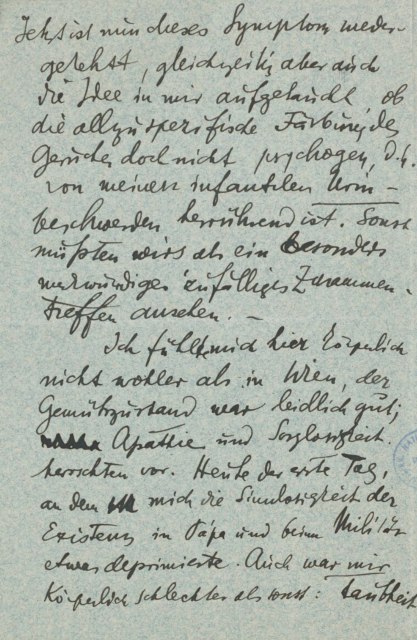 Jetzt ist nun dieses Symptom wieder-
gekehrt, gleichzeitig aber auch
die Idee in mir aufgetaucht, ob
die allzuspezifische Färbung des
Geruches doch nicht psychogen, d.h.
von meinen infantilen Urin-
beschwerden herrührend ist. Sonst
müßten wir's als ein besonders
merkwürdiges zufälliges Zusammen-
treffen ansehen. –
Ich fühlte mich hier körperlich
nicht wohler als in Wien, der
Gemühtszustand war leidlich gut;
Apathie und Sorglosigkeit
herrschten vor. Heute der erste Tag,
an dem mich die Sinnlosigkeit der
Existenz in Pápa und beim Militär
etwas deprimierte. Auch war mir
Körperlich schlechter als sonst: Taubheit